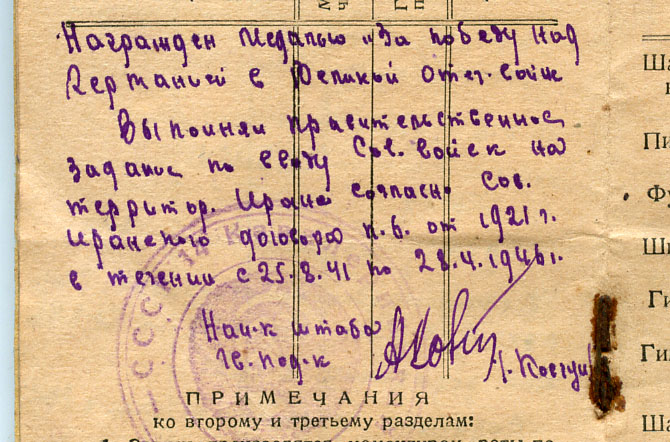 Награжден Медалью „За победу над
Германией в Великой Отеч. войне
Выполнял правительственное
задание по вводу Сов. войск на
территор. Ирана согласно Сов.
Иранского договора п. 6. от 1921 г.
в течении с 25.8.41 по 28.4.1946 г.
Нач-к штаба
Гв. под-к
ПРИМЕЧАНИЯ
ко второму и третьему разделам:
Ша
Пи
Фу
Ши
Ги
Гил
Ша
СССР